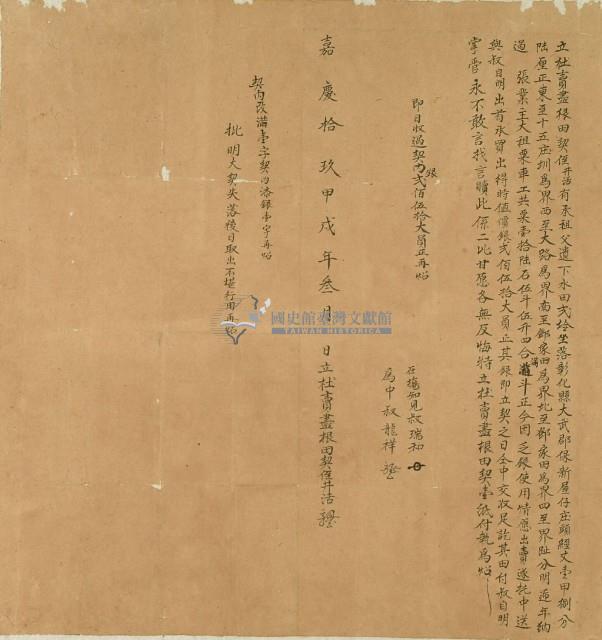 立杜賣盡根田契侄井活有承祖父遺下水田弍垮坐落彰化縣大武郡保新屋仔庄頭經丈壹甲捌分
陸厘正東至十五庄圳為界西至大路為界南至鄒家田為界北至鄒家田為界四至界趾分明遞年納
過 張業主大租粟車工共粟壹拾陸石伍斗伍升四合滿斗正今因乏銀使用情愿出賣遂托中送
與叔日明出首承買出得時值價銀弍佰伍拾大員正其銀即立契之日仝中交收足訖其田付叔日明
掌管永不敢言找言贖此係二比甘愿各無反悔特立杜賣盡根田契壹紙付執為炤
即日收過契內銀弍佰伍拾大員正再炤
在塲知見叔瑞初
為中叔龍祥
嘉慶拾玖甲戌年叁月 日立杜賣盡根田契侄井活
契內改滿壹字契內添銀壹字再炤
批明大契失落後日取出不堪行用再炤
國史館臺灣文獻館
TAIWAN HISTORICA